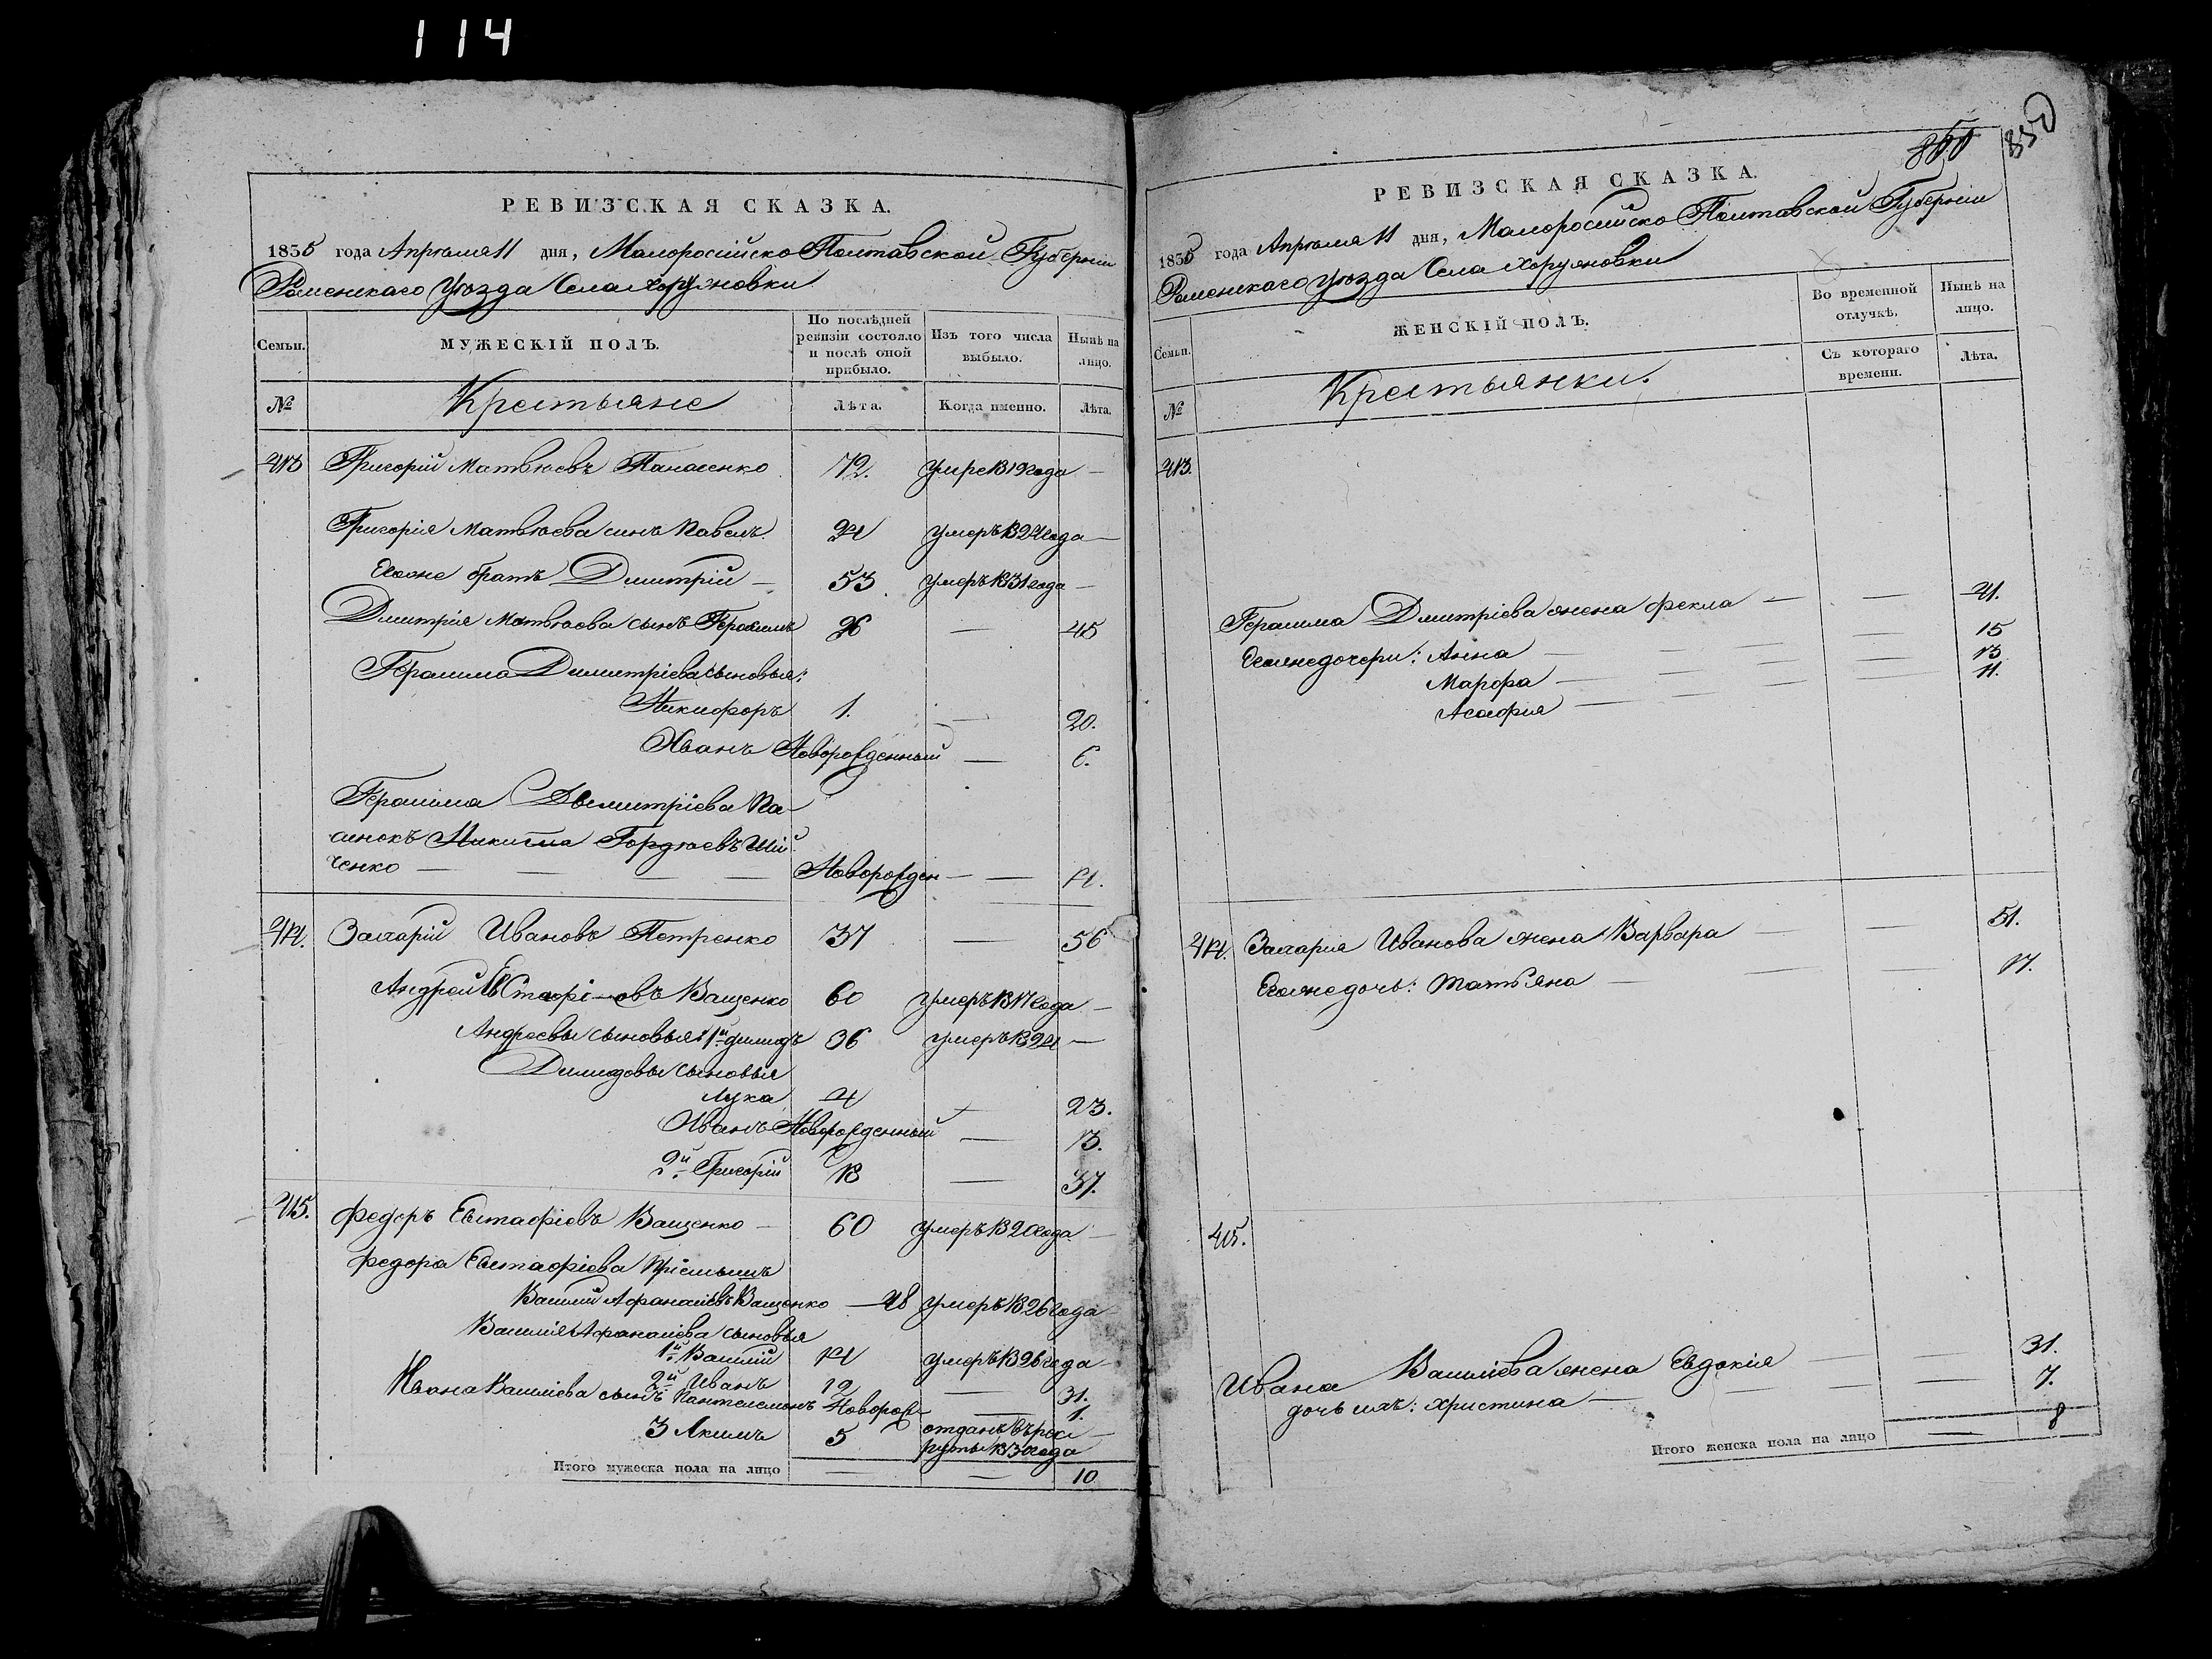 114
РЕВИЗСКАЯ СКАЗКА.
1835 года Апреля 11 дня, Малоросійско Полтавской Губерніи
Роменскаго Уезда Села Хоружовки
Семьи.
МУЖЕСКІЙ ПОЛЪ.
По послѣдней ревизіи состояло и послѣ оной прибыло.
Изъ того числа выбыло.
Нынѣ на лицо.
№
Крестьяне
Лѣта.
Когда именно.
Лѣта.
413 Григорій Матвеевъ Панасенко 72. умре 1819 года —
Григорія Матвеева синъ Павелъ. 24 умеръ 1824 года —
Егоже братъ Дмитрій — 53. умеръ 1831 года —
Дмитрія Матвеева сынъ Герасимъ 26 — 45
Герасима Димитріева сыновья:
Никифоръ 1. — 20.
Иванъ Новорожденный — 6.
Герасима Димитріева Па-
синокъ Никита Гордеевъ Ший-
ченко — — — — Новорожден — — 14.
414. Захарій Ивановъ Петренко 37 — 56
Андрей Евстафі-овъ Ващенко 60 умеръ 1817 года —
Андреевы сыновья: 1й Димидъ 36 умеръ 1824 —
Димидовы сыновья
Лука 4 — 23.
Иванъ Новорожденный — 13.
2й Григорій 18 — 37.
415. Федоръ Евстафіевъ Ващенко — 60 умеръ 1820 года —
Федора Евстафіева Пріемышъ
Василій Афанасіевъ Ващенко — 48 умеръ 1826 года
Василія Афанасіева сыновья
1й Василій 14 умеръ 1826 года —
2й Иванъ 12 — 31.
Ивана Василіева сынъ Пантелемонъ Новорож — 1.
3 Акимъ 5 отданъ въ рек-
руты 1830 года
Итого мужеска пола на лицо — — 10
850
850
РЕВИЗСКАЯ СКАЗКА.
1835 года Апреля 11 дня, Малоросійско Полтавской Губерніи
Роменскаго Уезда Села Хоружовки
Семьи.
ЖЕНСКІЙ ПОЛЪ.
Во временной отлучкѣ.
Нынѣ на лицо.
№
Крестьянки.
Съ котораго времени.
Лѣта.
413.
Герасима Дмитріева жена Фекла — — 41.
Егоже дочери: Анна — — 15
Марфа — — 13
Агафия — — 11.
414. Захария Иванова жена Варвара — — 51.
Егоже дочь: Татьяна — — 17.
415.
Ивана Василіева жена Евдокія — — 31.
дочь ихъ: Христина — — 7.
Итого женска пола на лицо — 8